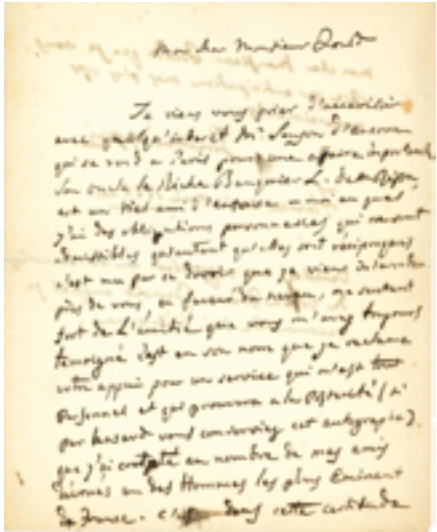 Mon cher Monsieur
Je viens vous prier d'accueillir
avec quelqu'interet Mr d'
qui se rend a Paris pour une affaire importante
Son oncle le Riche Banquier L. de
est un vieil ami d'enfance a moi au quel
j'ai des obligations personnelles qui seront
qu'autant qu'elles sont réciproques
c'est mu par ce devoir que je viens
près de vous, en faveur du neveu, me sentant
fort de L'amitié que vous m'avez toujours
temoigné c'est en son nom que je reclame
votre appui pour un service qui m'est tout
personnel et qui prouvera a la postérité (si
par hasard vous conserviez cet autographe).
que j'ai compté au nombre de mes amis
un des Hommes les plus Eminent
de France. c'est dans cette certitude